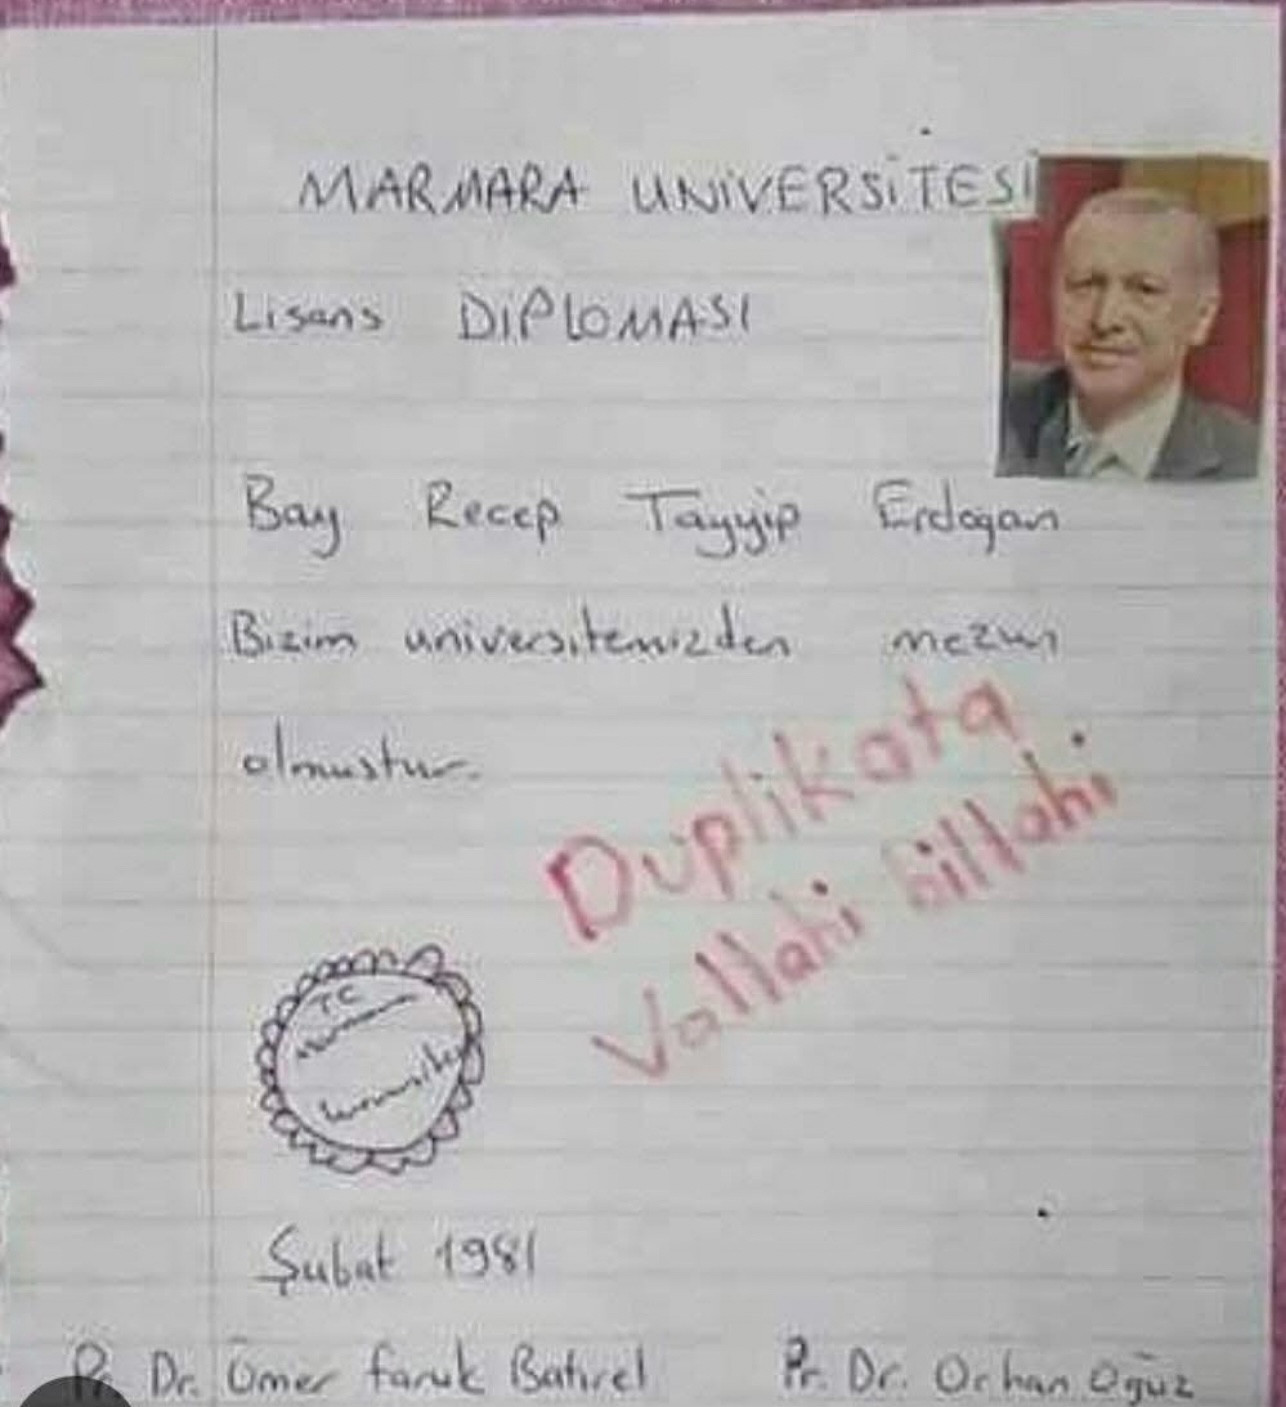 MARMARA UNİVERSİTESİ
Lisans DİPLOMASI
Bay Recep Tayyip Erdogan
Bizim universitemizden mezun
olmustur.
Duplikata
Vallahi billahi
TC
Şubat 1981
Pr. Dr. Ömer faruk Batırel
Pr. Dr. Orhan Oğuz